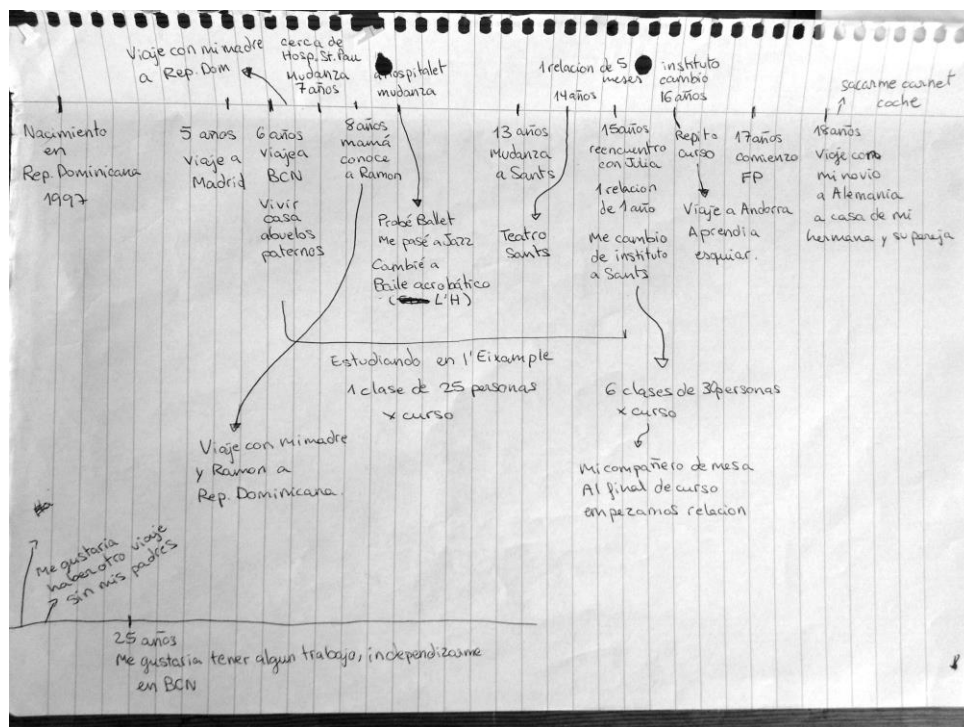 Viaje con mi madre
a Rep. Dom
cerca de
Hosp. St. Pau
Mudanza
7 años
a Hospitalet
mudanza
1 relacion de 5
meses
14 años
instituto
cambio
16 años
sacarme carnet
coche
Nacimiento
en
Rep. Dominicana
1997
5 años
Viaje a
Madrid
6 años
Viaje a
BCN
Vivir
casa
abuelos
paternos
8 años
mamá
conoce
a Ramon
Probé Ballet
Me pasé a Jazz
Cambié a
Baile acrobático
(L'H)
13 años
Mudanza
a Sants
Teatro
Sants
15 años
reencuentro
con Júlia
1 relacion
de 1 año
Me cambio
de instituto
a Sants
Repito
curso
Viaje a Andorra
Aprendi a
esquiar.
17 años
comienzo
FP
18 años
Viaje con
mi novio
a Alemania
a casa de mi
hermana y su pareja
Estudiando en l'Eixample
1 clase de 25 personas
x curso
6 clases de 30 personas
x curso
Viaje con mi madre
y Ramon a
Rep. Dominicana.
Mi compañero de mesa
Al final de curso
empezamos relacion
Me gustaria
haber otro viaje
sin mis padres
25 años
Me gustaria tener algun trabajo, independizarme
en BCN